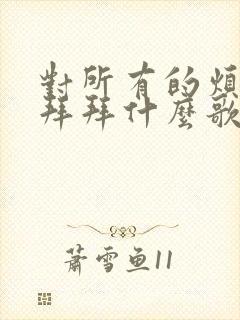 對所有的煩
拜拜什麼歌
蕭雪魚11